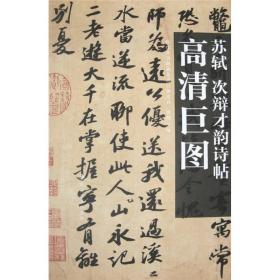 苏轼 次辩才韵诗帖
高清巨图
鱉
寓常
恐
令愧
師為遠公優送我還過溪
水當逆流聊使此人山永記
二老遊大千在掌握寧有離
別憂